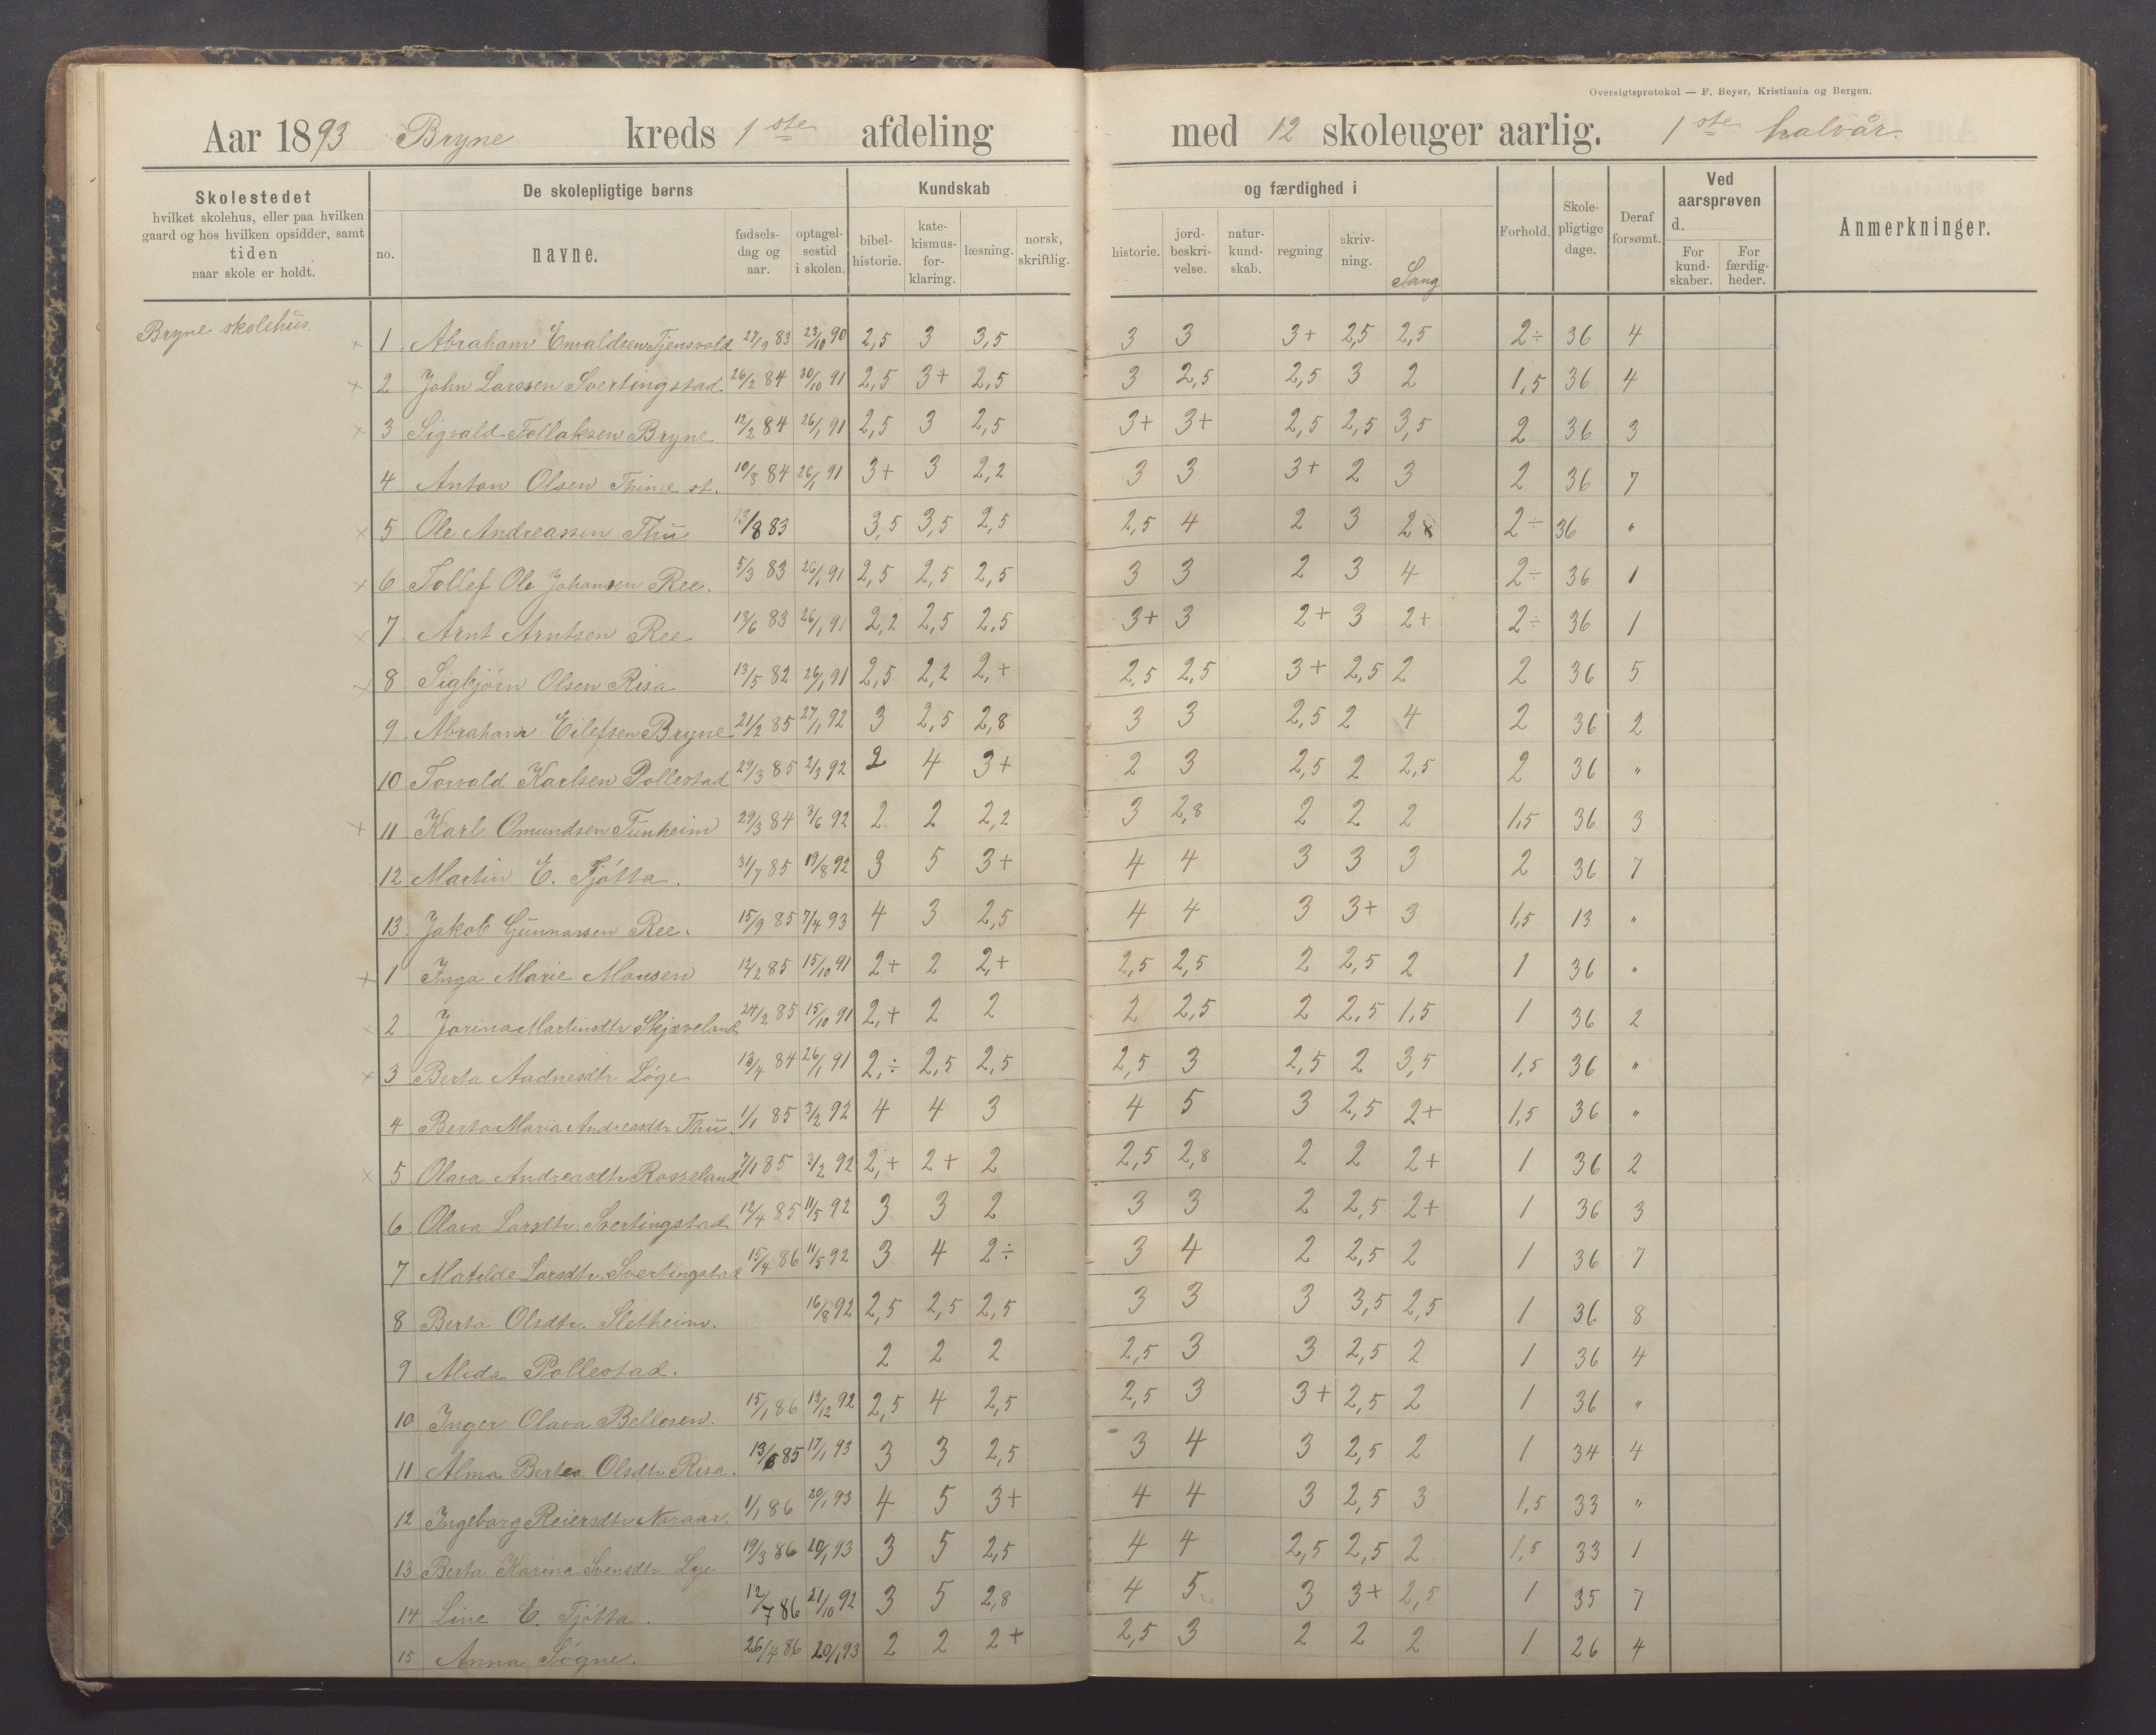 Oversigtsprotokol — F. Beyer, Kristiania og Bergen.
Aar 1893 Bryne kreds 1ste afdeling med 12 skoleuger aarlig. 1ste halvår.
Skolestedet
hvilket skolehus, eller paa hvilken
gaard og hos hvilken opsidder, samt
tiden
naar skole er holdt.
De skolepligtige børns
no. navne. fødsels-dag og aar. optagel-sestid i skolen.
Kundskab og færdighed i
bibel-historie. kate-kismus-for-klaring. læsning. norsk, skriftlig. historie. jord-beskri-velse. natur-kund-skab. regning skriv-ning. Sang
Forhold. Skole-pligtige dage. Deraf forsømt.
Ved aarsprøven d.
For kund-skaber. For færdig-heder.
Anmerkninger.
Bryne skolehus.
× 1 Abraham Envaldsen Tjensvold 27/9 83 23/10 90 2,5 3 3,5 3 3 3+ 2,5 2,5 2÷ 36 4
× 2 John Larssen Svertingstad 26/2 84 30/10 91 2,5 3+ 2,5 3 2,5 2,5 3 2 1,5 36 4
× 3 Sigvald Tollaksen Bryne 12/2 84 26/1 91 2,5 3 2,5 3+ 3+ 2,5 2,5 3,5 2 36 3
4 Anton Olsen Thime st. 10/8 84 26/1 91 3+ 3 2,2 3 3 3+ 2 3 2 36 7
× 5 Ole Andreassen Thu 13/8 83 3,5 3,5 2,5 2,5 4 2 3 2 2÷ 36 "
× 6 Tollef Ole Johansen Ree. 5/3 83 26/1 91 2,5 2,5 2,5 3 3 2 3 4 2÷ 36 1
× 7 Arnt Arntsen Ree 13/6 83 26/1 91 2,2 2,5 2,5 3+ 3 2+ 3 2+ 2÷ 36 1
× 8 Sigbjörn Olsen Risa 13/5 82 26/1 91 2,5 2,2 2,+ 2,5 2,5 3+ 2,5 2 2 36 5
9 Abraham Eilefsen Bryne 21/2 85 27/1 92 3 2,5 2,8 3 3 2,5 2 4 2 36 2
10 Torvald Karlsen Pollestad 29/3 85 2/3 92 2 4 3+ 2 3 2,5 2 2,5 2 36 "
× 11 Karl Omundsen Tunheim 29/3 84 3/6 92 2 2 2,2 3 2,8 2 2 2 1,5 36 3
12 Martin E. Tjótta. 31/7 85 19/8 92 3 5 3+ 4 4 3 3 3 2 36 7
13 Jakob Gunnarsen Ree. 15/9 85 7/4 93 4 3 2,5 4 4 3 3+ 3 1,5 13 "
× 1 Inga Marie Monsen 12/2 85 15/10 91 2+ 2 2,+ 2,5 2,5 2 2,5 2 1 36 "
× 2 Jorina Martinsdtr Skjæveland 24/2 85 15/10 91 2,+ 2 2 2 2,5 2 2,5 1,5 1 36 2
× 3 Berta Aadnesdtr Löge 13/4 84 26/1 91 2,÷ 2,5 2,5 2,5 3 2,5 2 3,5 1,5 36 "
4 Berta Maria Andreasdtr Thu. 1/1 85 3/2 92 4 4 3 4 5 3 2,5 2+ 1,5 36 "
× 5 Olava Andreasdtr Rosseland 7/1 85 3/2 92 2,+ 2+ 2 2,5 2,8 2 2 2+ 1 36 2
6 Olava Larsdtr. Svertingstad 12/4 85 11/5 92 3 3 2 3 3 2 2,5 2+ 1 36 3
7 Matilde Larsdtr. Svertingstad 15/4 86 11/5 92 3 4 2÷ 3 4 2 2,5 2 1 36 7
8 Berta Olsdtr. Sletheim. 16/8 92 2,5 2,5 2,5 3 3 3 3,5 2,5 1 36 8
9 Alida Pollestad. 2 2 2 2,5 3 3 2,5 2 1 36 4
10 Inger Olava Bellesen. 15/1 86 13/12 92 2,5 4 2,5 2,5 3 3+ 2,5 2 1 36 "
11 Alma Bertea Olsdtr Risa. 13/6 85 17/1 93 3 3 2,5 3 4 3 2,5 2 1 34 4
12 Ingeborg Reiersdtr 1/1 86 20/1 93 4 5 3+ 4 4 3 2,5 3 1,5 33 "
13 Berta Karina Svensdtr 19/3 86 20/1 93 3 5 2,5 4 4 2,5 2,5 2 1,5 33 1
14 Line E. Tjötta. 12/7 86 21/10 92 3 5 2,8 4 5 3 3+ 2,5 1 35 7
15 Anna Sogne. 26/4 86 20/1 93 2 2 2+ 2,5 3 2 2 2 1 26 4